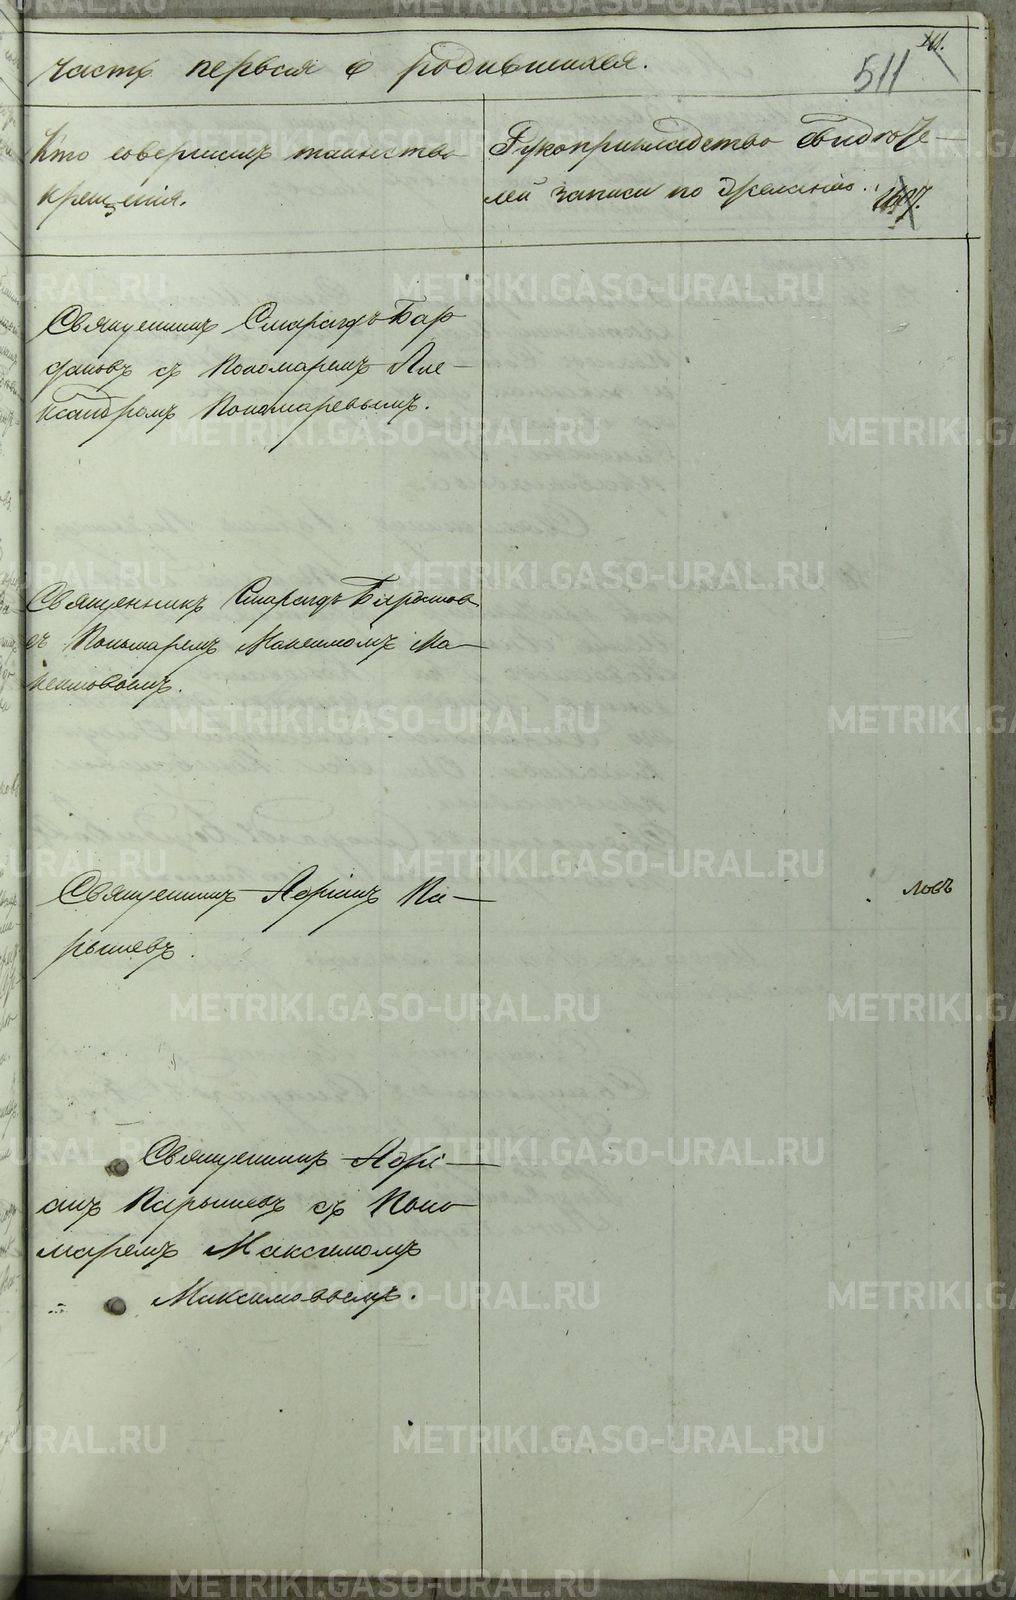 часть первая о родившихся.
511
Кто совершалъ таинство
крещенія.
Рукоприкладство свидѣте-
лей записи по желанію.
Священникъ Смарагдъ Бар
дановъ съ Пономаремъ Але-
ксандромъ Пономаревымъ.
Священникъ Смарагдъ
съ Пономаремъ Максимомъ Ма-
ксимовымъ.
Священникъ Адріанъ Па-
рышевъ.
ловъ
Священникъ Адрі-
анъ Парышевъ съ Поно
маремъ Максимомъ
Максимовымъ.
METRIKI.GASO-URAL.RU